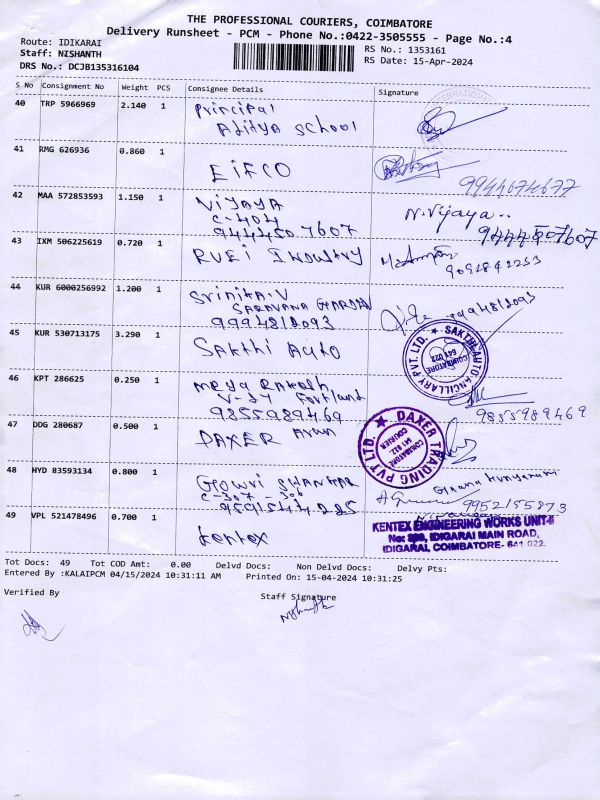 THE PROFESSIONAL COURIERS, COIMBATORE
Delivery Runsheet - PCM - Phone No.:0422-3505555 - Page No.:4
Route: IDIKARAI
Staff: NISHANTH
DRS No.: DCJB135316104
RS No.: 1353161
RS Date: 15-Apr-2024
S No Consignment No Weight PCS Consignee Details Signature
40 TRP 5966969 2.140 1 Principal
Aditya School
41 RMG 626936 0.860 1 EIFCO
9944674677
42 MAA 572853593 1.150 1 Vijaya N.Vijaya..
C-404
9444507607 9444507607
43 IXM 506225619 0.720 1
44 KUR 6000256992 1.200 1 Srinika.V
9994812093 9994812093
45 KUR 530713175 3.290 1 Sakthi Auto
SAKTHI AUTO ANCILLARY PVT. LTD.
COIMBATORE
641 022
46 KPT 286625 0.250 1
9855989469 9855989469
47 DDG 280687 0.500 1 DAXER Arun
DAXER TRADING PVT LTD.
COIMBATORE
641 022.
COURIER
48 HYD 83593134 0.800 1 Gowri Shankar
9952155873
49 VPL 521478496 0.700 1 kentex
KENTEX ENGINEERING WORKS UNIT-II
IDIGARAI MAIN ROAD,
IDIGARAI, COIMBATORE- 641 022
Tot Docs: 49 Tot COD Amt: 0.00 Delvd Docs: Non Delvd Docs: Delvy Pts:
Entered By :KALAIPCM 04/15/2024 10:31:11 AM Printed On: 15-04-2024 10:31:25
Verified By
Staff Signature